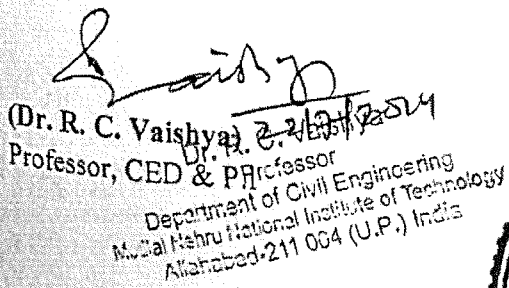 (Dr. R. C. Vaishya)
Professor, CED & PI
Professor
Department of Civil Enginoering
Motilal Nehru National Institute of Technology
Allahabad-211 004 (U.P.) India